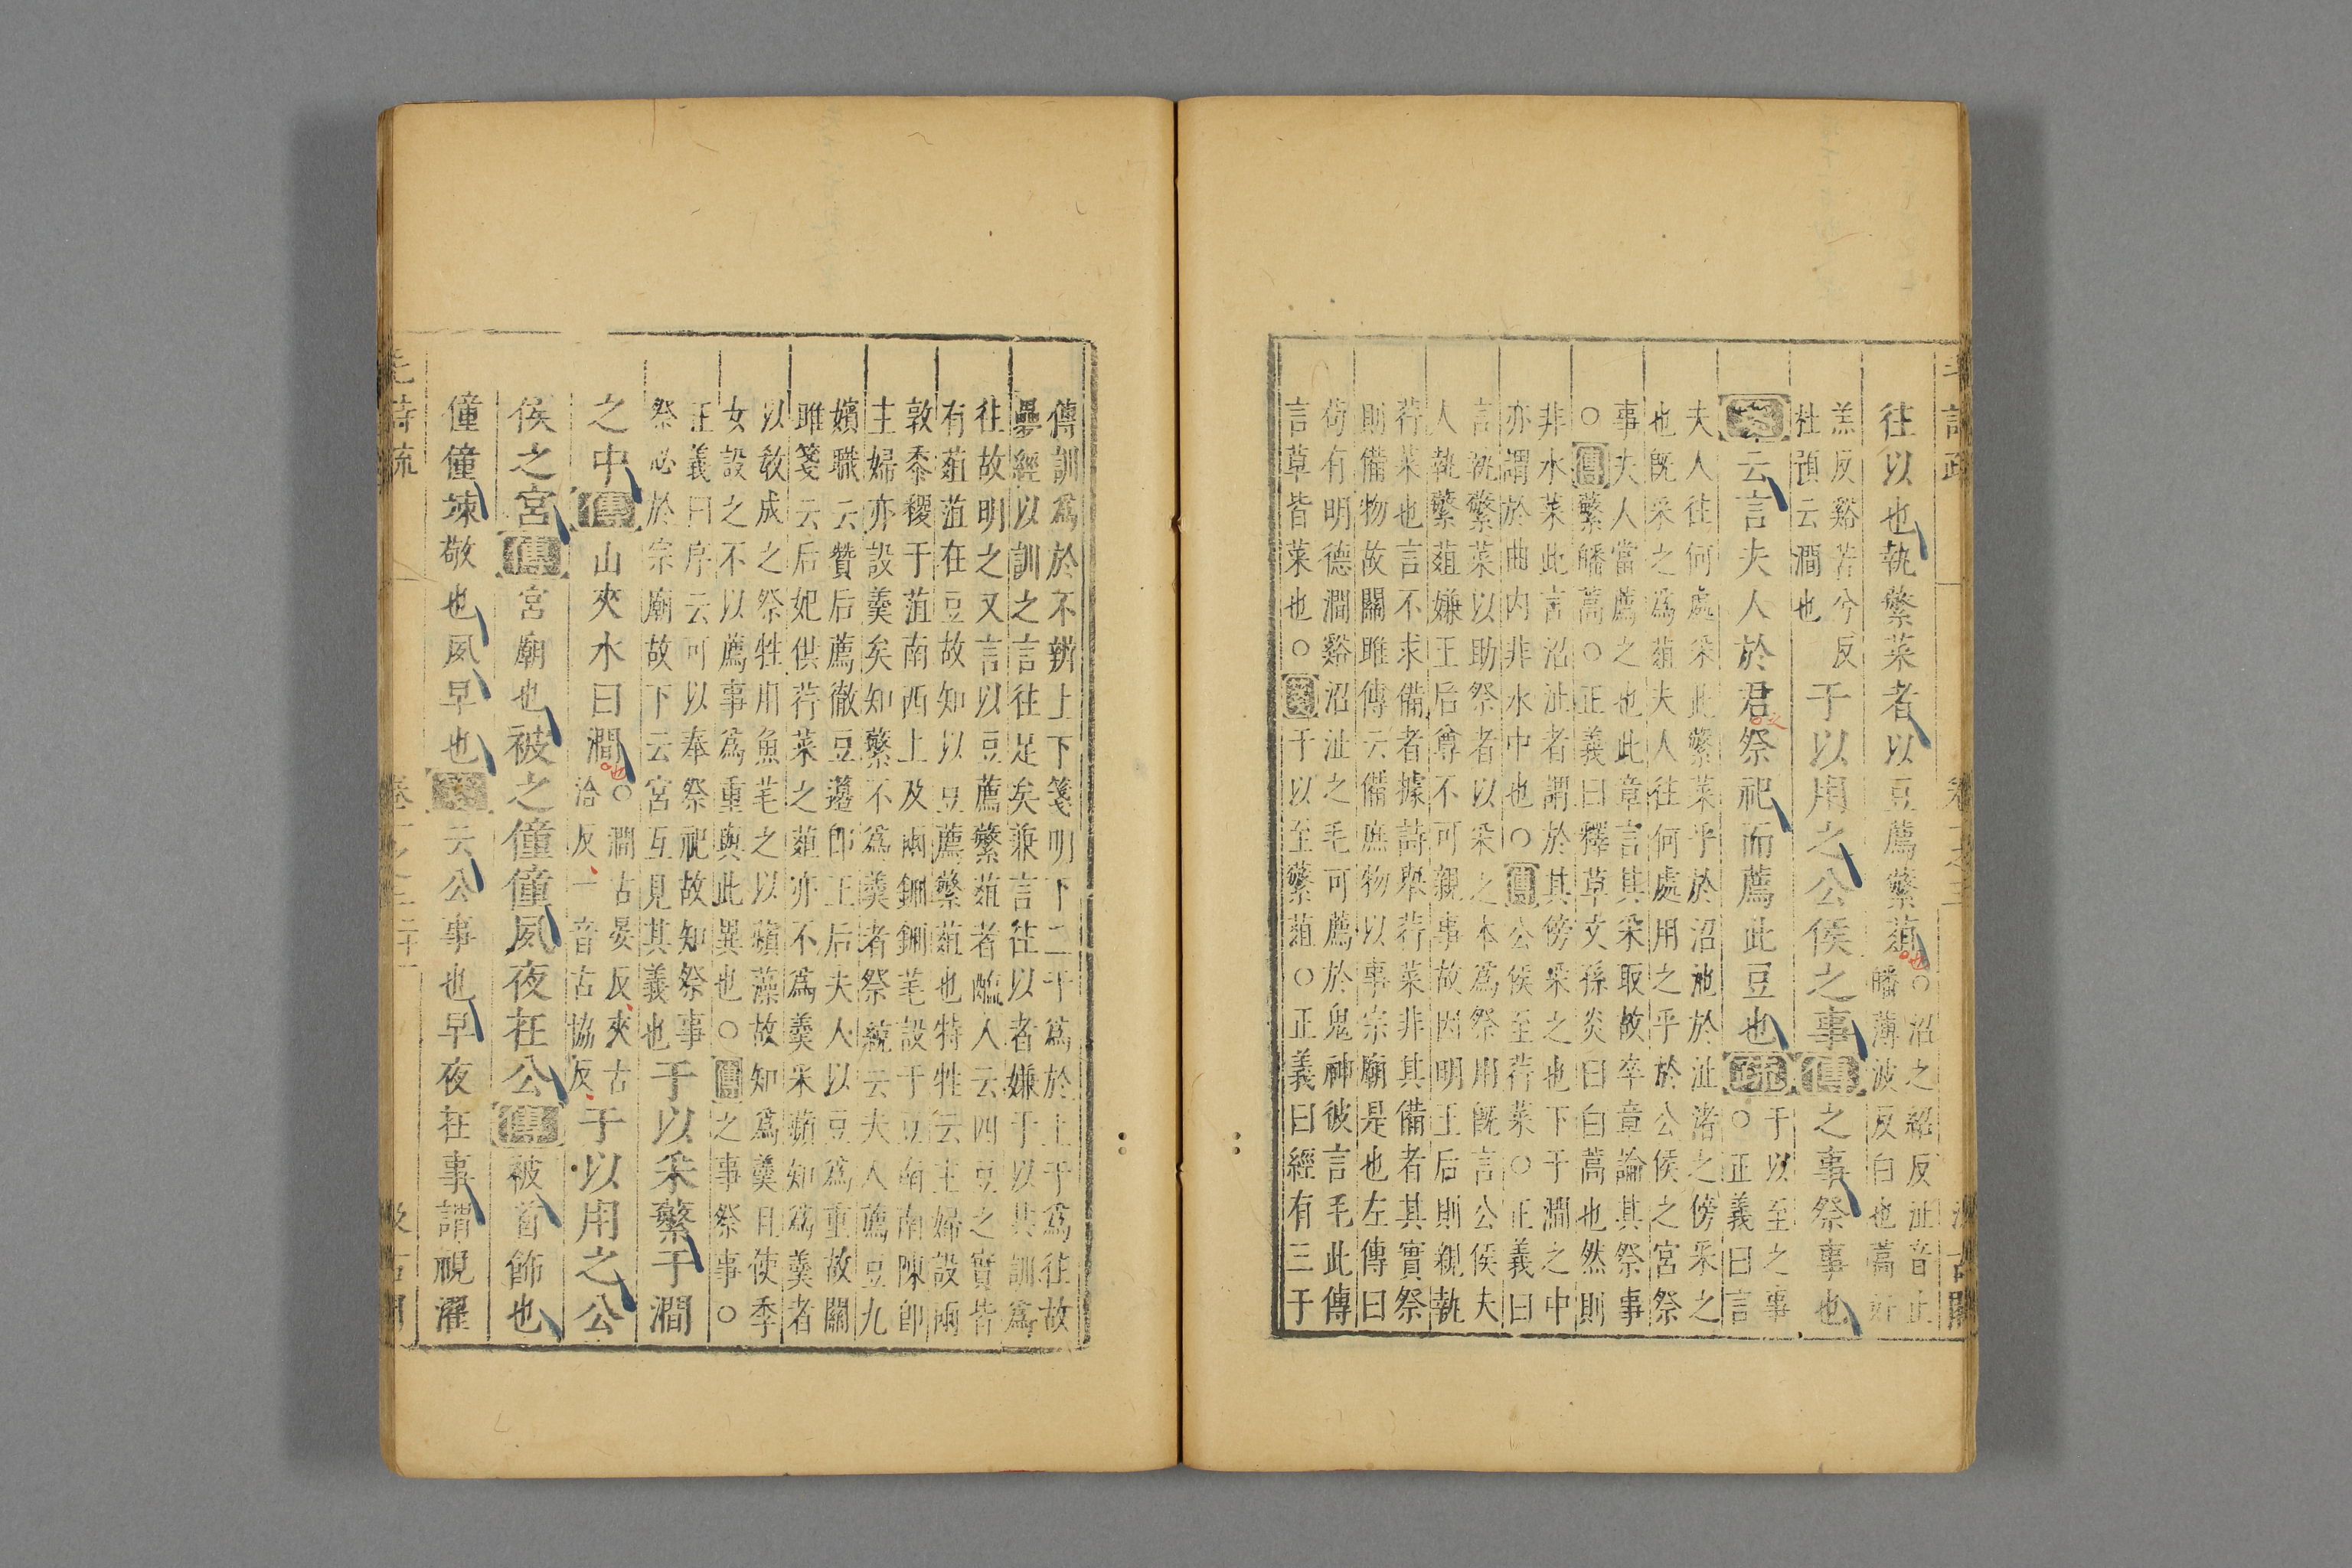 往以也執繁菜者以豆薦繁葅
○沼之紹反沚音止
皤薄波反白也蒿好
羔反谿苦兮反
杜預云澗也
于以用之公侯之事傳之事祭事也
箋云言夫人於君祭祀而薦此豆也疏
于以至之事
○正義曰言
夫人往何處采此繁菜乎於沼池於沚渚之傍采之
也旣采之爲葅夫人往何處用之乎於公侯之宮祭
事夫人當薦之也此章言其采取故卒章論其祭事
○傳繁皤蒿○正義曰釋草文孫炎曰白蒿也然則
非水菜此言沼沚者謂於其傍采之也下于澗之中
亦謂於曲內非水中也○傳公侯至荇菜○正義曰
言執繁菜以助祭者以采之本爲祭用旣言公侯夫
人執繁葅嫌王后尊不可親事故因明王后則親執
荇菜也言不求備者據詩舉荇菜非其備者其實祭
則備物故關雎傳云備庶物以事宗廟是也左傳曰
苟有明德澗谿沼沚之毛可薦於鬼神彼言毛此傳
言草皆菜也○箋于以至繁葅○正義曰經有三于
傳訓爲於不辨上下箋明下二于爲於上于爲往故
疊經以訓之言往足矣兼言往以者嫌于以共訓爲
往故明之又言以豆薦繁葅者醢人云四豆之實皆
有葅菹在豆故知以豆薦繁葅也特牲云主婦設兩
敦黍稷于菹南西上及兩鉶鉶芼設于豆南南陳卽
主婦亦設羹矣知繁不爲羹者祭統云夫人薦豆九
嬪職云贊后薦徹豆籩卽王后夫人以豆爲重故關
雎箋云后妃供荇菜之葅亦不爲羹采蘋知爲羹者
以敎成之祭牲用魚芼之以蘋藻故知爲羹且使季
女設之不以薦事爲重與此異也○傳之事祭事○
正義曰序云可以奉祭祀故知祭事
祭必於宗廟故下云宮互見其義也
于以采繁于澗
之中傳山夾水曰澗
○澗古晏反夾古
洽反一音古協反
于以用之公
侯之宮傳宮廟也被之僮僮夙夜在公傳被首飾也
僮僮竦敬也夙早也箋云公事也早夜在事謂視濯